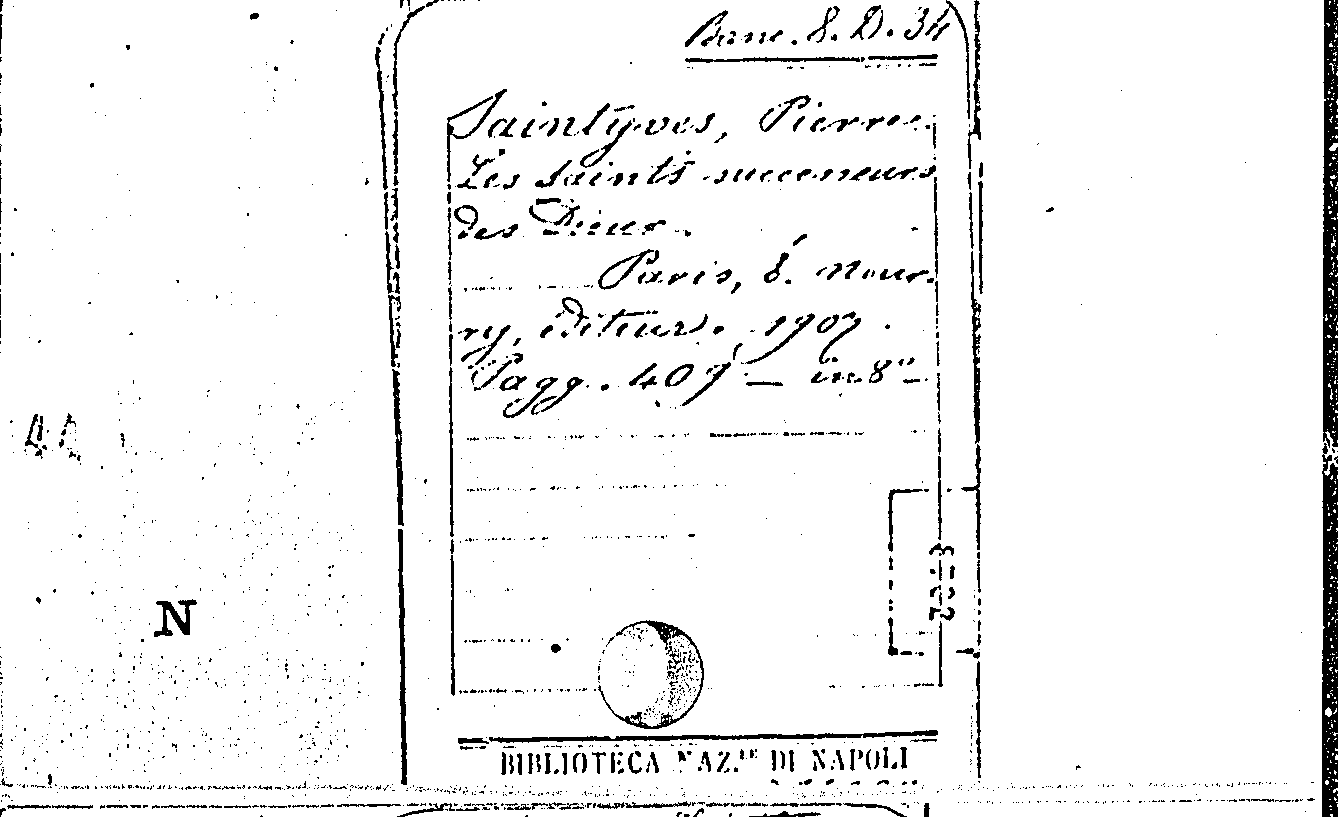 Banc. 8. D. 34
Saintyves, Pierre.
Les saints successeurs
des Dieux.
Paris, É. Nour-
ry, éditeur, 1907.
Pagg. 409 — in 8°
N
BIBLIOTECA NAZ.LE DI NAPOLI